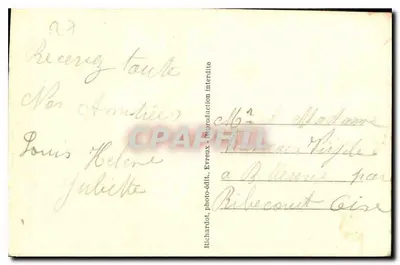 27
Recevez toute
Nos Amitiés
Louis Helene
Juliette
Richardot, photo-édit., Evreux - Reproduction interdite
Mr & Madame
à par
Ribecourt Oise
CPAPHIL